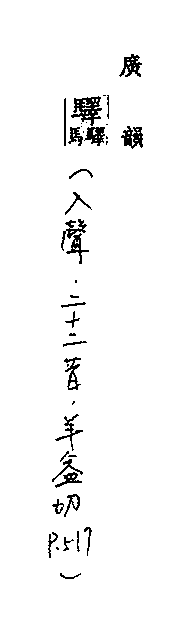 廣韻
驛驛馬（入聲．二十二昔．羊益切P.517）